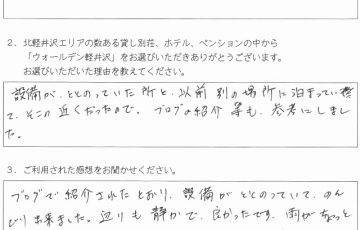 2．北軽井沢エリアの数ある貸し別荘、ホテル、ペンションの中から
「ウォールデン軽井沢」をお選びいただきありがとうございます。
お選びいただいた理由を教えてください。
設備が、ととのっていた所と、以前 別の場所に泊まってい
て、そこの近くだったので、ブログの紹介 等も、参考にしまし
た。
3．ご利用された感想をお聞かせください。
ブログで紹介されたとおり、設備がととのっていて、のん
びり出来ました。辺りも静かで、良かったです。雨がちょっと